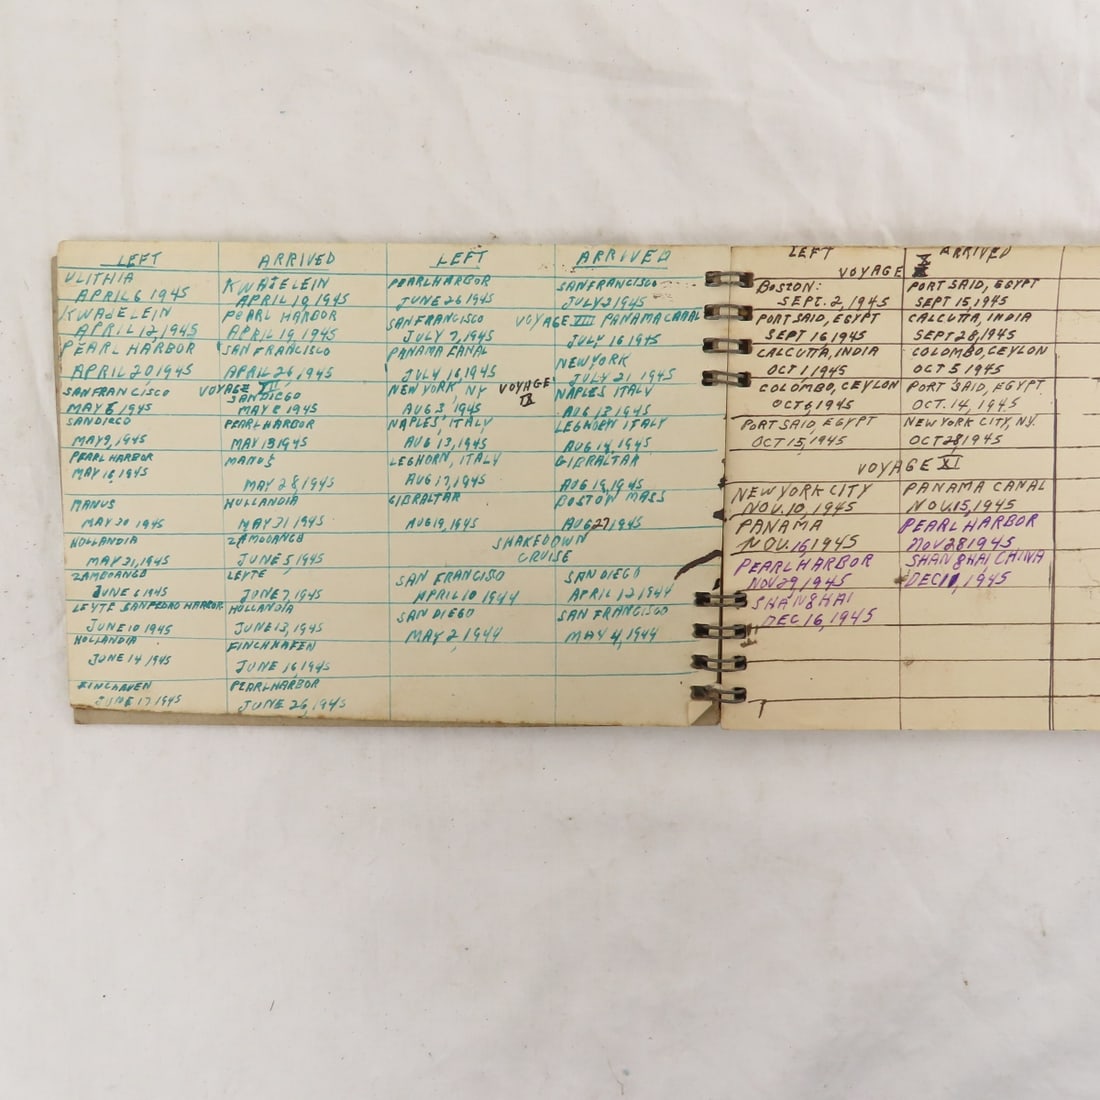 LEFT ARRIVED
ULITHIA KWAJELEIN
APRIL 6 1945 APRIL 10, 1945
KWAJELEIN PEARL HARBOR
APRIL 12, 1945 APRIL 19, 1945
PEARL HARBOR SAN FRANCISCO
APRIL 20 1945 APRIL 26, 1945
VOYAGE VII
SANFRANCISCO SANDIEGO
MAY 6 1945 MAY 8 1945
SANDIEGO PEARL HARBOR
MAY 9, 1945 MAY 15 1945
PEARL HARBOR MANUS
MAY 16, 1945 MAY 28 1945
MANUS HOLLANDIA
MAY 30 1945 MAY 31 1945
HOLLANDIA ZAMBOANGO
MAY 31, 1945 JUNE 5, 1945
ZAMBOANGO LEYTE
JUNE 6 1945 JUNE 7, 1945
LEYTE SANPEDRO HARBOR HOLLANDIA
JUNE 10 1945 JUNE 13, 1945
HOLLANDIA FINCHHAFEN
JUNE 14 1945 JUNE 16, 1945
FINCHAVEN PEARL HARBOR
JUNE 17 1945 JUNE 26, 1945
LEFT ARRIVED
PEARL HARBOR SANFRANCISCO
JUNE 26 1945 JULY 2 1945
VOYAGE VIII
SANFRANCISCO PANAMA CANAL
JULY 7, 1945 JULY 16 1945
PANAMA CANAL NEW YORK
JULY 16, 1945 JULY 21 1945
VOYAGE IX
NEW YORK, NY NAPLES ITALY
AUG 3, 1945 AUG 13, 1945
NAPLES ITALY LEGHORN ITALY
AUG 13, 1945 AUG 14, 1945
LEGHORN, ITALY GIBRALTAR
AUG 17, 1945 AUG 19, 1945
GIBRALTAR BOSTON MASS
AUG 19, 1945 AUG 27, 1945
SHAKEDOWN
CRUISE
SAN FRANCISCO SAN DIEGO
APRIL 10 1944 APRIL 12 1944
SAN DIEGO SAN FRANCISCO
MAY 2, 1944 MAY 4, 1944
LEFT ARRIVED
VOYAGE X
BOSTON: PORT SAID, EGYPT
SEPT. 2, 1945 SEPT 15, 1945
PORT SAID, EGYPT CALCUTTA, INDIA
SEPT 16 1945 SEPT 28, 1945
CALCUTTA, INDIA COLOMBO, CEYLON
OCT 1 1945 OCT 5 1945
COLOMBO, CEYLON PORT SAID, EGYPT
OCT 6, 1945 OCT. 14, 1945
PORT SAID, EGYPT NEW YORK CITY, N.Y.
OCT 15, 1945 OCT 28, 1945
VOYAGE XI
NEW YORK CITY PANAMA CANAL
NOV. 10, 1945 NOV. 15, 1945
PANAMA PEARL HARBOR
NOV. 16, 1945 NOV 28 1945
PEARL HARBOR SHANGHAI CHINA
NOV 29, 1945 DEC 11, 1945
SHANGHAI
DEC 16, 1945